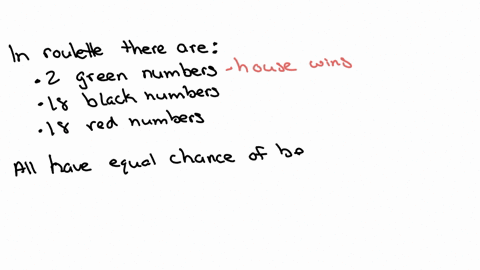 In roulette there are:
• 2 green numbers - house wins
• 18 black numbers
• 18 red numbers
All have equal chance of be